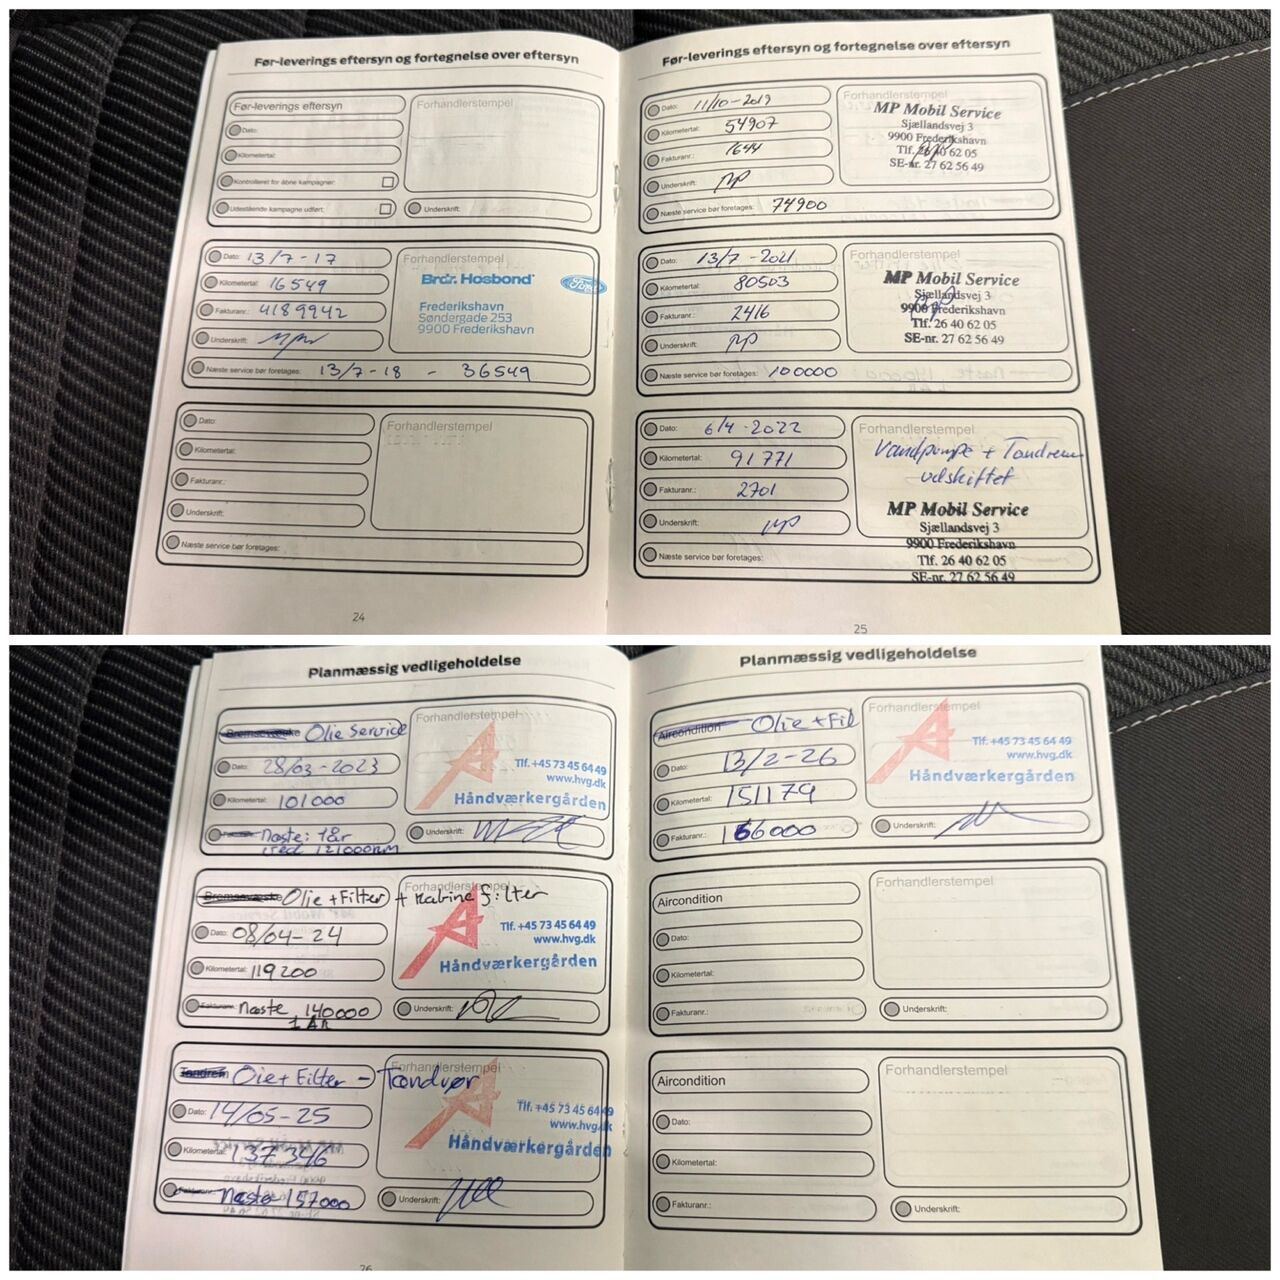 Før-leverings eftersyn og fortegnelse over eftersyn
Før-leverings eftersyn
Dato:
Kilometertal:
Kontrolleret for åbne kampagner:
Udestående kampagne udført:
Forhandlerstempel
Underskrift:
Dato: 13/7-17
Kilometertal: 16549
Fakturanr.: 4189942
Underskrift:
Næste service bør foretages: 13/7-18 - 36549
Forhandlerstempel
Brdr. Hosbond
Ford
Frederikshavn
Søndergade 253
9900 Frederikshavn
Dato:
Kilometertal:
Fakturanr.:
Underskrift:
Næste service bør foretages:
Forhandlerstempel
24
Før-leverings eftersyn og fortegnelse over eftersyn
Dato: 11/10-2019
Kilometertal: 54907
Fakturanr.: 1644
Underskrift: MP
Næste service bør foretages: 74900
Forhandlerstempel
MP Mobil Service
Sjællandsvej 3
9900 Frederikshavn
Tlf. 26 40 62 05
SE-nr. 27 62 56 49
Dato: 13/7-2021
Kilometertal: 80503
Fakturanr.: 2416
Underskrift: MP
Næste service bør foretages: 100000
Forhandlerstempel
MP Mobil Service
Sjællandsvej 3
9900 Frederikshavn
Tlf. 26 40 62 05
SE-nr. 27 62 56 49
Dato: 6/4-2022
Kilometertal: 91771
Fakturanr.: 2701
Underskrift: MP
Næste service bør foretages:
Forhandlerstempel
Vandpumpe + Tandrem
udskiftet
MP Mobil Service
Sjællandsvej 3
9900 Frederikshavn
Tlf. 26 40 62 05
SE-nr. 27 62 56 49
25
Planmæssig vedligeholdelse
Bremsevæske Olie Service
Dato: 28/03-2023
Kilometertal: 101000
Fakturanr.: Næste: 1 år
121000KM
Forhandlerstempel
Tlf. +45 73 45 64 49
www.hvg.dk
Håndværkergården
Underskrift:
Bremsevæske Olie + Filter + Kabine filter
Dato: 08/04-24
Kilometertal: 119200
Fakturanr.: Næste 140000
1 ÅR
Forhandlerstempel
Tlf. +45 73 45 64 49
www.hvg.dk
Håndværkergården
Underskrift:
Tandrem Oie + Filter - Tændrør
Dato: 14/05-25
Kilometertal: 137346
Fakturanr.: Næste 157000
Forhandlerstempel
Tlf. +45 73 45 64 49
www.hvg.dk
Håndværkergården
Underskrift:
26
Planmæssig vedligeholdelse
Aircondition Olie + Fil
Dato: 13/2-26
Kilometertal: 151179
Fakturanr.: 166000
Forhandlerstempel
Tlf. +45 73 45 64 49
www.hvg.dk
Håndværkergården
Underskrift:
Aircondition
Dato:
Kilometertal:
Fakturanr.:
Forhandlerstempel
Underskrift:
Aircondition
Dato:
Kilometertal:
Fakturanr.:
Forhandlerstempel
Underskrift: